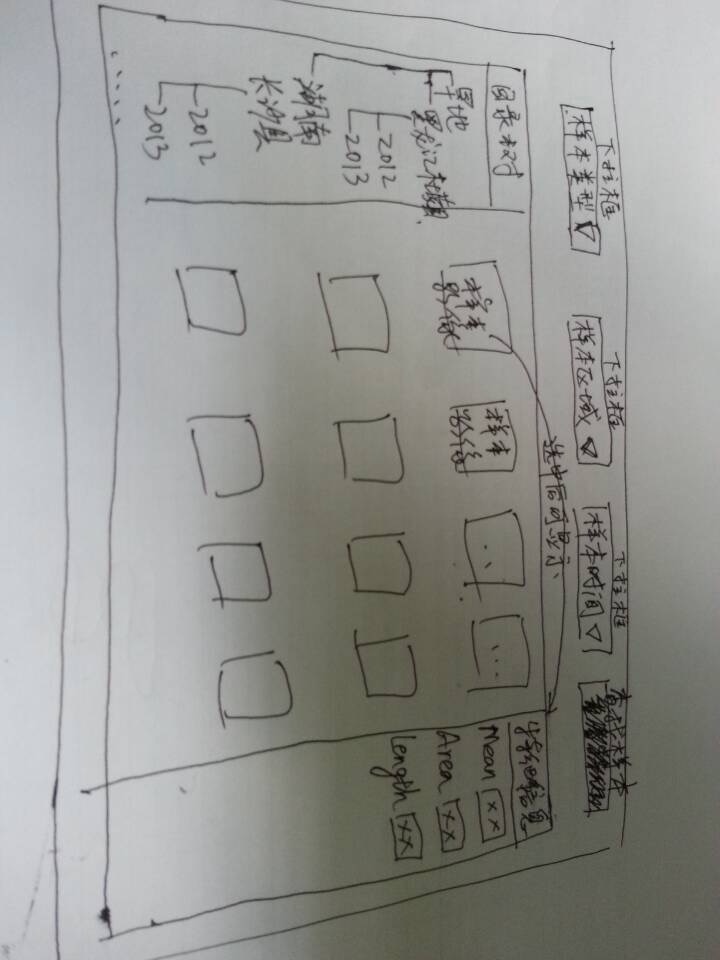 下拉框
样本类型
下拉框
样本区域
下拉框
样本时间
查找样本
目录树
旱地
2012
2013
湖南
长沙县
2012
2013
......
样本
影像
样本
影像
...
...
选中后可显示
信息
Mean xx
Area xx
Length xx